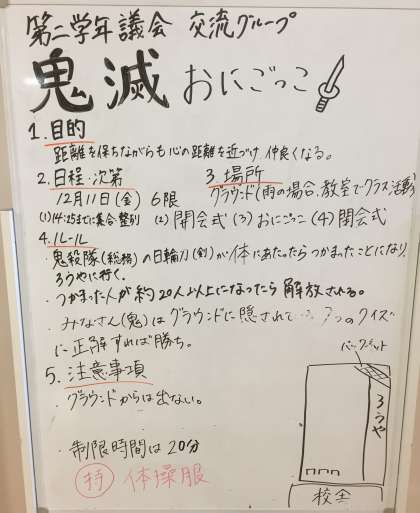 第二学年議会 交流グループ
鬼滅おにごっこ
1.目的
距離を保ちながらも心の距離を近づけ 仲良くなる。
2.日程・次第
12月11日(金) 6限
3.場所
グラウンド(雨の場合、教室でクラス活動)
(1)14:25までに集合・整列 (2)開会式 (3)おにごっこ (4)閉会式
4.ルール
・鬼殺隊(総務)の日輪刀(剣)が体にあたったらつかまったことになり、
ろうやに行く。
・つかまった人が約20人以上になったら解放される。
・みなさん(鬼)はグラウンドに隠されて 7つのクイズ
に正解すれば勝ち。
5.注意事項
・グラウンドからは出ない。
・制限時間は20分
持 体操服
バックネット
ろうや
校舎